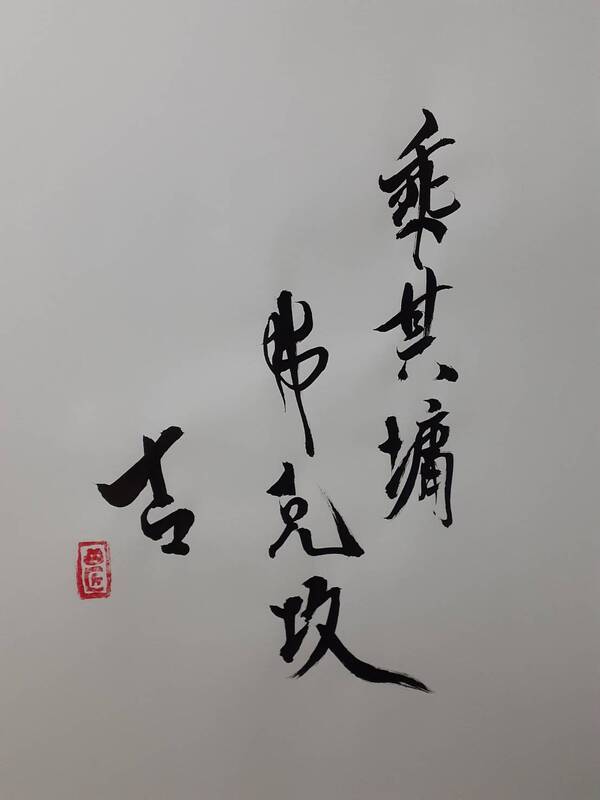 乘其墉
弗克攻
吉